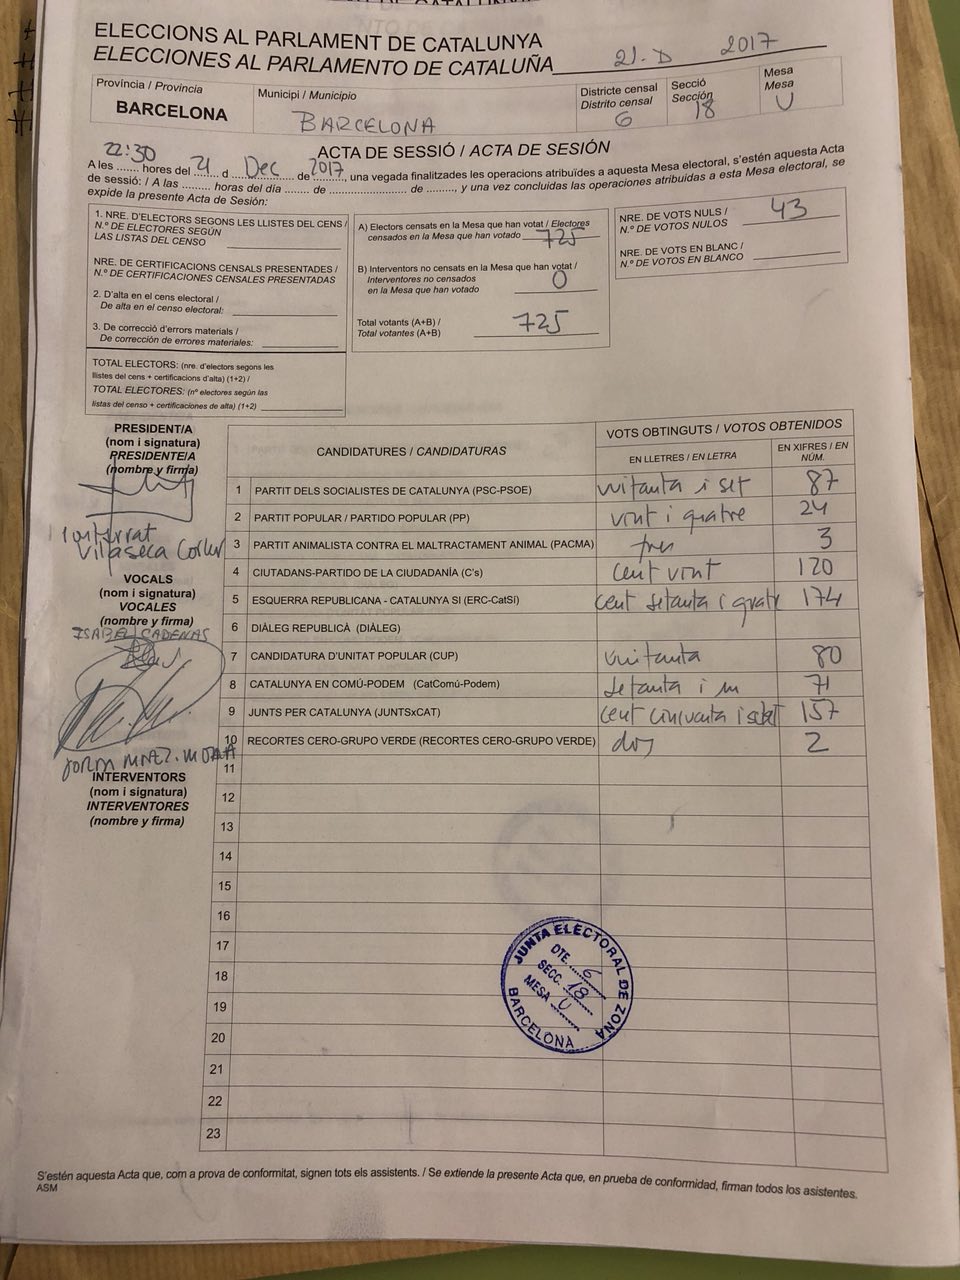 ELECCIONS AL PARLAMENT DE CATALUNYA
ELECCIONES AL PARLAMENTO DE CATALUÑA 21-D 2017
Província / Provincia
BARCELONA
Municipi / Municipio
BARCELONA
Districte censal
Distrito censal
6
Secció
Sección
18
Mesa
Mesa
U
ACTA DE SESSIÓ / ACTA DE SESIÓN
A les 22:30 hores del 21 d Dec de 2017, una vegada finalitzades les operacions atribuïdes a aquesta Mesa electoral, s'estén aquesta Acta
de sessió: / A las ......... horas del día ....... de ..................... de ........, y una vez concluidas las operaciones atribuidas a esta Mesa electoral, se
expide la presente Acta de Sesión:
1. NRE. D'ELECTORS SEGONS LES LLISTES DEL CENS /
N.º DE ELECTORES SEGÚN
LAS LISTAS DEL CENSO
NRE. DE CERTIFICACIONS CENSALS PRESENTADES /
N.º DE CERTIFICACIONES CENSALES PRESENTADAS
2. D'alta en el cens electoral /
De alta en el censo electoral:
3. De correcció d'errors materials /
De corrección de errores materiales:
TOTAL ELECTORS: (nre. d'electors segons les
llistes del cens + certificacions d'alta) (1+2) /
TOTAL ELECTORES: (nº electores según las
listas del censo + certificaciones de alta) (1+2)
A) Electors censats en la Mesa que han votat / Electores
censados en la Mesa que han votado 725
B) Interventors no censats en la Mesa que han votat /
Interventores no censados
en la Mesa que han votado 0
Total votants (A+B) /
Total votantes (A+B) 725
NRE. DE VOTS NULS /
N.º DE VOTOS NULOS 43
NRE. DE VOTS EN BLANC /
N.º DE VOTOS EN BLANCO
PRESIDENT/A
(nom i signatura)
PRESIDENTE/A
(nombre y firma)
Vilaseca
VOCALS
(nom i signatura)
VOCALES
(nombre y firma)
ISABEL CADENAS
INTERVENTORS
(nom i signatura)
INTERVENTORES
(nombre y firma)
CANDIDATURES / CANDIDATURAS
VOTS OBTINGUTS / VOTOS OBTENIDOS
EN LLETRES / EN LETRA
EN XIFRES / EN NÚM.
1 PARTIT DELS SOCIALISTES DE CATALUNYA (PSC-PSOE) vuitanta i set 87
2 PARTIT POPULAR / PARTIDO POPULAR (PP) vint i quatre 24
3 PARTIT ANIMALISTA CONTRA EL MALTRACTAMENT ANIMAL (PACMA) tres 3
4 CIUTADANS-PARTIDO DE LA CIUDADANÍA (C's) cent vint 120
5 ESQUERRA REPUBLICANA - CATALUNYA SI (ERC-CatSí) cent setanta i quatre 174
6 DIÀLEG REPUBLICÀ (DIÀLEG)
7 CANDIDATURA D'UNITAT POPULAR (CUP) vuitanta 80
8 CATALUNYA EN COMÚ-PODEM (CatComú-Podem) setanta i un 71
9 JUNTS PER CATALUNYA (JUNTSxCAT) cent cinquanta i set 157
10 RECORTES CERO-GRUPO VERDE (RECORTES CERO-GRUPO VERDE) dos 2
11
12
13
14
15
16
17
18
19
20
21
22
23
JUNTA ELECTORAL DE ZONA
DTE. 6
SECC. 18
MESA U
BARCELONA
S'estén aquesta Acta que, com a prova de conformitat, signen tots els assistents. / Se extiende la presente Acta que, en prueba de conformidad, firman todos los asistentes.
ASM